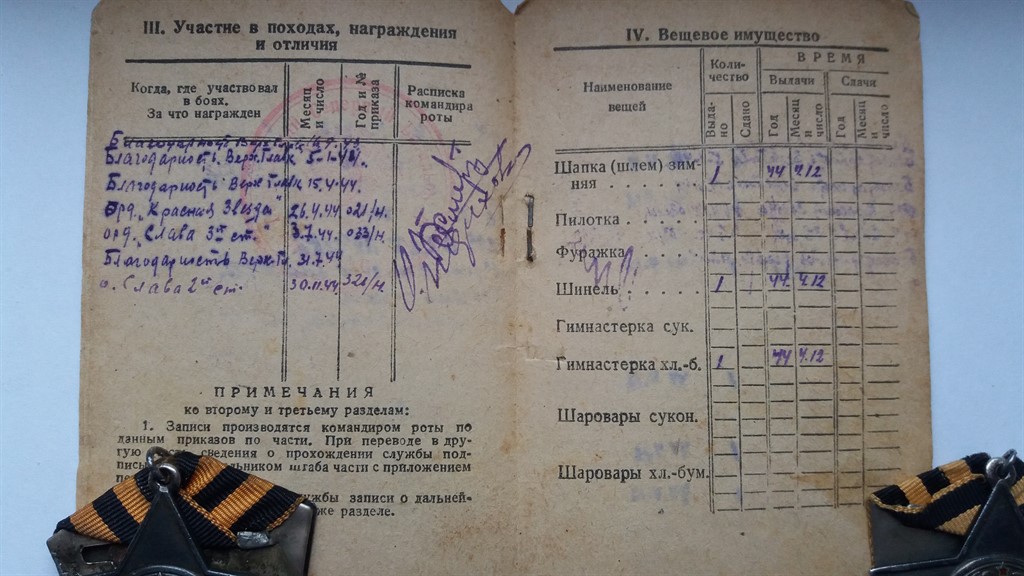 III. Участие в походах, награждения
и отличия
Когда, где участвовал
в боях.
За что награжден
Месяц
и число
Год и №
приказа
Расписка
командира
роты
Благодарность
Благодарность Верх. Главк 5.1.44г.
Благодарность Верх Главк 15.4.44.
Орд. „Красная Звезда" 26.4.44 021/н.
орд. „Слава 3й ст." 3.7.44 033/н
Благодарность Верх. Гл. 31.7.44
о. Слава 2й ст. 30.11.44 320/н.
ПРИМЕЧАНИЯ
ко второму и третьему разделам:
1. Записи производятся командиром роты по
данным приказов по части. При переводе в дру-
гую сведения о прохождении службы под-
льником штаба части с приложением
ужбы записи о дальней-
же разделе.
IV. Вещевое имущество
Наименование
вещей
Коли-
чество
ВРЕМЯ
Выдачи
Сдачи
Выда-
но
Сдано
Год
Месяц
и
число
Год
Месяц
и
число
Шапка (шлем) зим-
няя . . . . . . . 1 44 4.12
Пилотка . . . . . .
Фуражка . . . . . .
Шинель . . . . . . 1 44 4.12
Гимнастерка сук.
Гимнастерка хл.-б. 1 44 4.12
Шаровары сукон.
Шаровары хл.-бум.